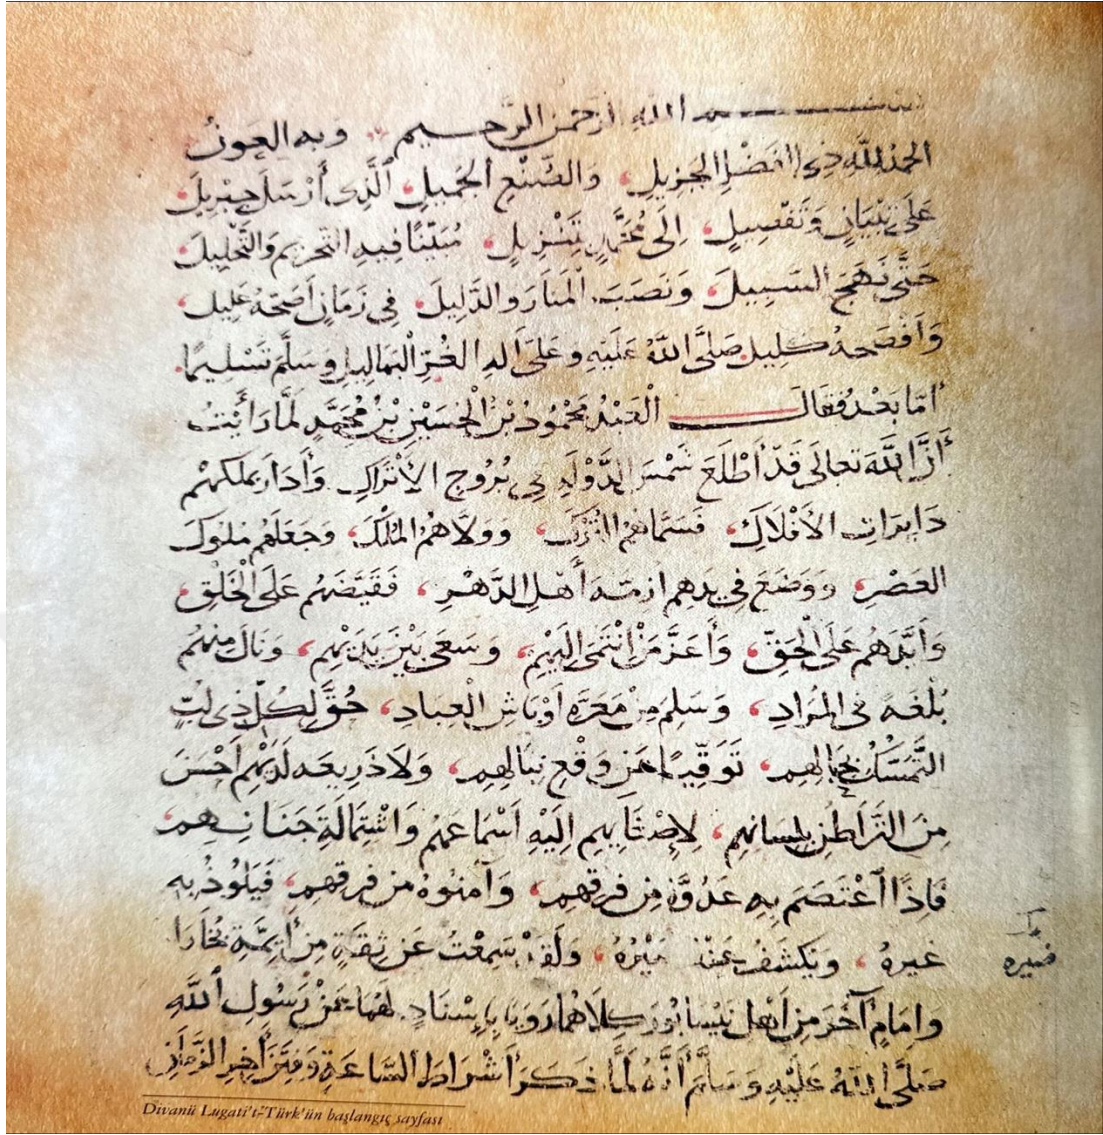 بسم الله الرحمن الرحيم وبه العون
الحمد لله ذي الفضل الجزيل، والصُّنْعِ الجَميلِ، الَّذِي أَرْسَلَ جِبْرِيلَ
عَلَى تِبْيَانٍ وَتَفْصِيلٍ، إِلى مُحَمَّدٍ بِتَنْزِيلٍ، مُبَيِّنًا فِيهِ التَّحْرِيمَ وَالتَّحْلِيلَ
حَتَّى نَهَجَ السَّبِيلَ، وَنَصَبَ الْمَنَارَ وَالدَّلِيلَ، فِي زَمَانٍ أَصَحُّهُ عَلِيل،
وَأَفْصَحُهُ كَلِيل صَلَّى اللَّهُ عَلَيْهِ وَعَلَى آلِهِ الغُرِّ الْبَهَالِيلِ وَسَلَّمَ تَسْلِيمًا.
أَمَّا بَعْدُ فَقَالَ الْعَبْدُ مَحْمُودُ بْنُ الْحُسَيْنِ بْنِ مُحَمَّدٍ لَمَّا رَأَيْتُ
أَنَّ اللَّهَ تعالى قَدْ أَطْلَعَ شَمْسَ الدَّوْلَةِ فِي بُرُوجِ الأَتْرَاكِ وَأَدَارَ بملكهِمْ
دَايِرَاتِ الأَفْلَاكِ، فَسَمَّاهُمُ التُّرْكَ، وَوَلَّاهُمُ المُلْكَ، وَجَعَلَهُمْ مُلُوكَ
العَصْرِ، وَوَضَعَ في يدهم ازمّة أَهْلِ الدَّهْرِ، فَقَيَّضَهُم عَلَى الْخَلْقِ،
وَأَيَّدَهُم عَلَى الْحَقِّ، وَأَعَزَّ مَنْ انْتَمَى إِلَيْهِم، وَسَعَى بَيْنَ يَدَيْهِم، وَنَالَ مِنهُم
بُلْغَةَ فى المُرَادِ، وَسَلِمَ مِنْ مَعَرَّةِ أَوْبَاشِ الْعِبَادِ، حُقَّ لِكُلِّ ذِى لُبٍّ
التَّمَسُّكُ بحبالهم، تَوَقِّيًا عَنْ وَقْعِ نِبَالِهِم، وَلَا ذَرِيعَةَ لَدَيْهِم أَحْسَنَ
مِنَ التَّرَاطُنِ بلِسَانِهِم، لإصْغَايِهِم إِلَيْهِ أَسْمَاعَهُم وَاسْتِمَالَةِ جَنَانِهِم
فَإِذَا اعْتَصَمَ بِهِ عَدُوُّهُ مِن فِرقهِم، وَآمَنُوهُ مِن فرقهِم، فَيَلُوذُ بِهِ
غيرهُ، وَيَكْشِفُ عَنْهُ ضَيْرُهُ، وَلَقَدْ سَمِعْتُ عَنْ ثِقَةٍ مِن أَيِمَّةِ بُخَارَا
ضيره
وَإمَامٍ آخَرَ مِنْ أَهْلِ نَيْسَابُور كِلَاهُمَا رَوَيَا بِإِسْنَادٍ لَهُمَا عَنْ رَسُولِ اللَّهِ
صَلَّى اللهُ عَلَيْهِ وَسَلَّمَ أَنَّهُ لَمَّا ذَكَرَ أَشْرَاطَ السَّاعَةِ وَفِتَنَ آخِرِ الزَّمَانِ
Divanü Lugati't-Türk'ün başlangıç sayfası